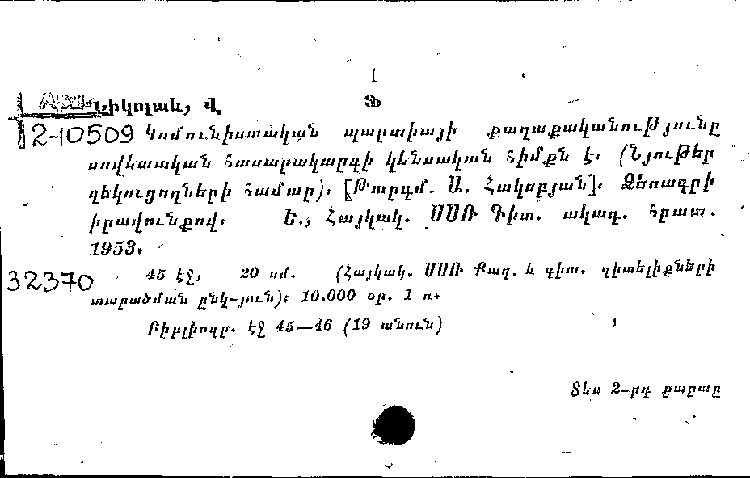 1
Նիկոլաև, Վ. Ֆ
2-10509 Կոմունիստական պարտիայի քաղաքականությունը
սովետական հասարակարգի կենսական հիմքն է. (Նյութեր
զեկուցողների համար). [Թարգմ. Ա. Հակոբյան]. Ձեռագրի
իրավունքով. Ե., Հայկակ. ՍՍՌ Գիտ. ակադ. հրատ.
1953.
32370 45 էջ, 20 սմ. (Հայկակ. ՍՍՌ Քաղ. և գիտ. գիտելիքների
տարածման ընկ-յուն): 10.000 օր. 1 ռ.
Բիբլիոգր. էջ 45—46 (19 անուն)
Տես 2-րդ քարտը